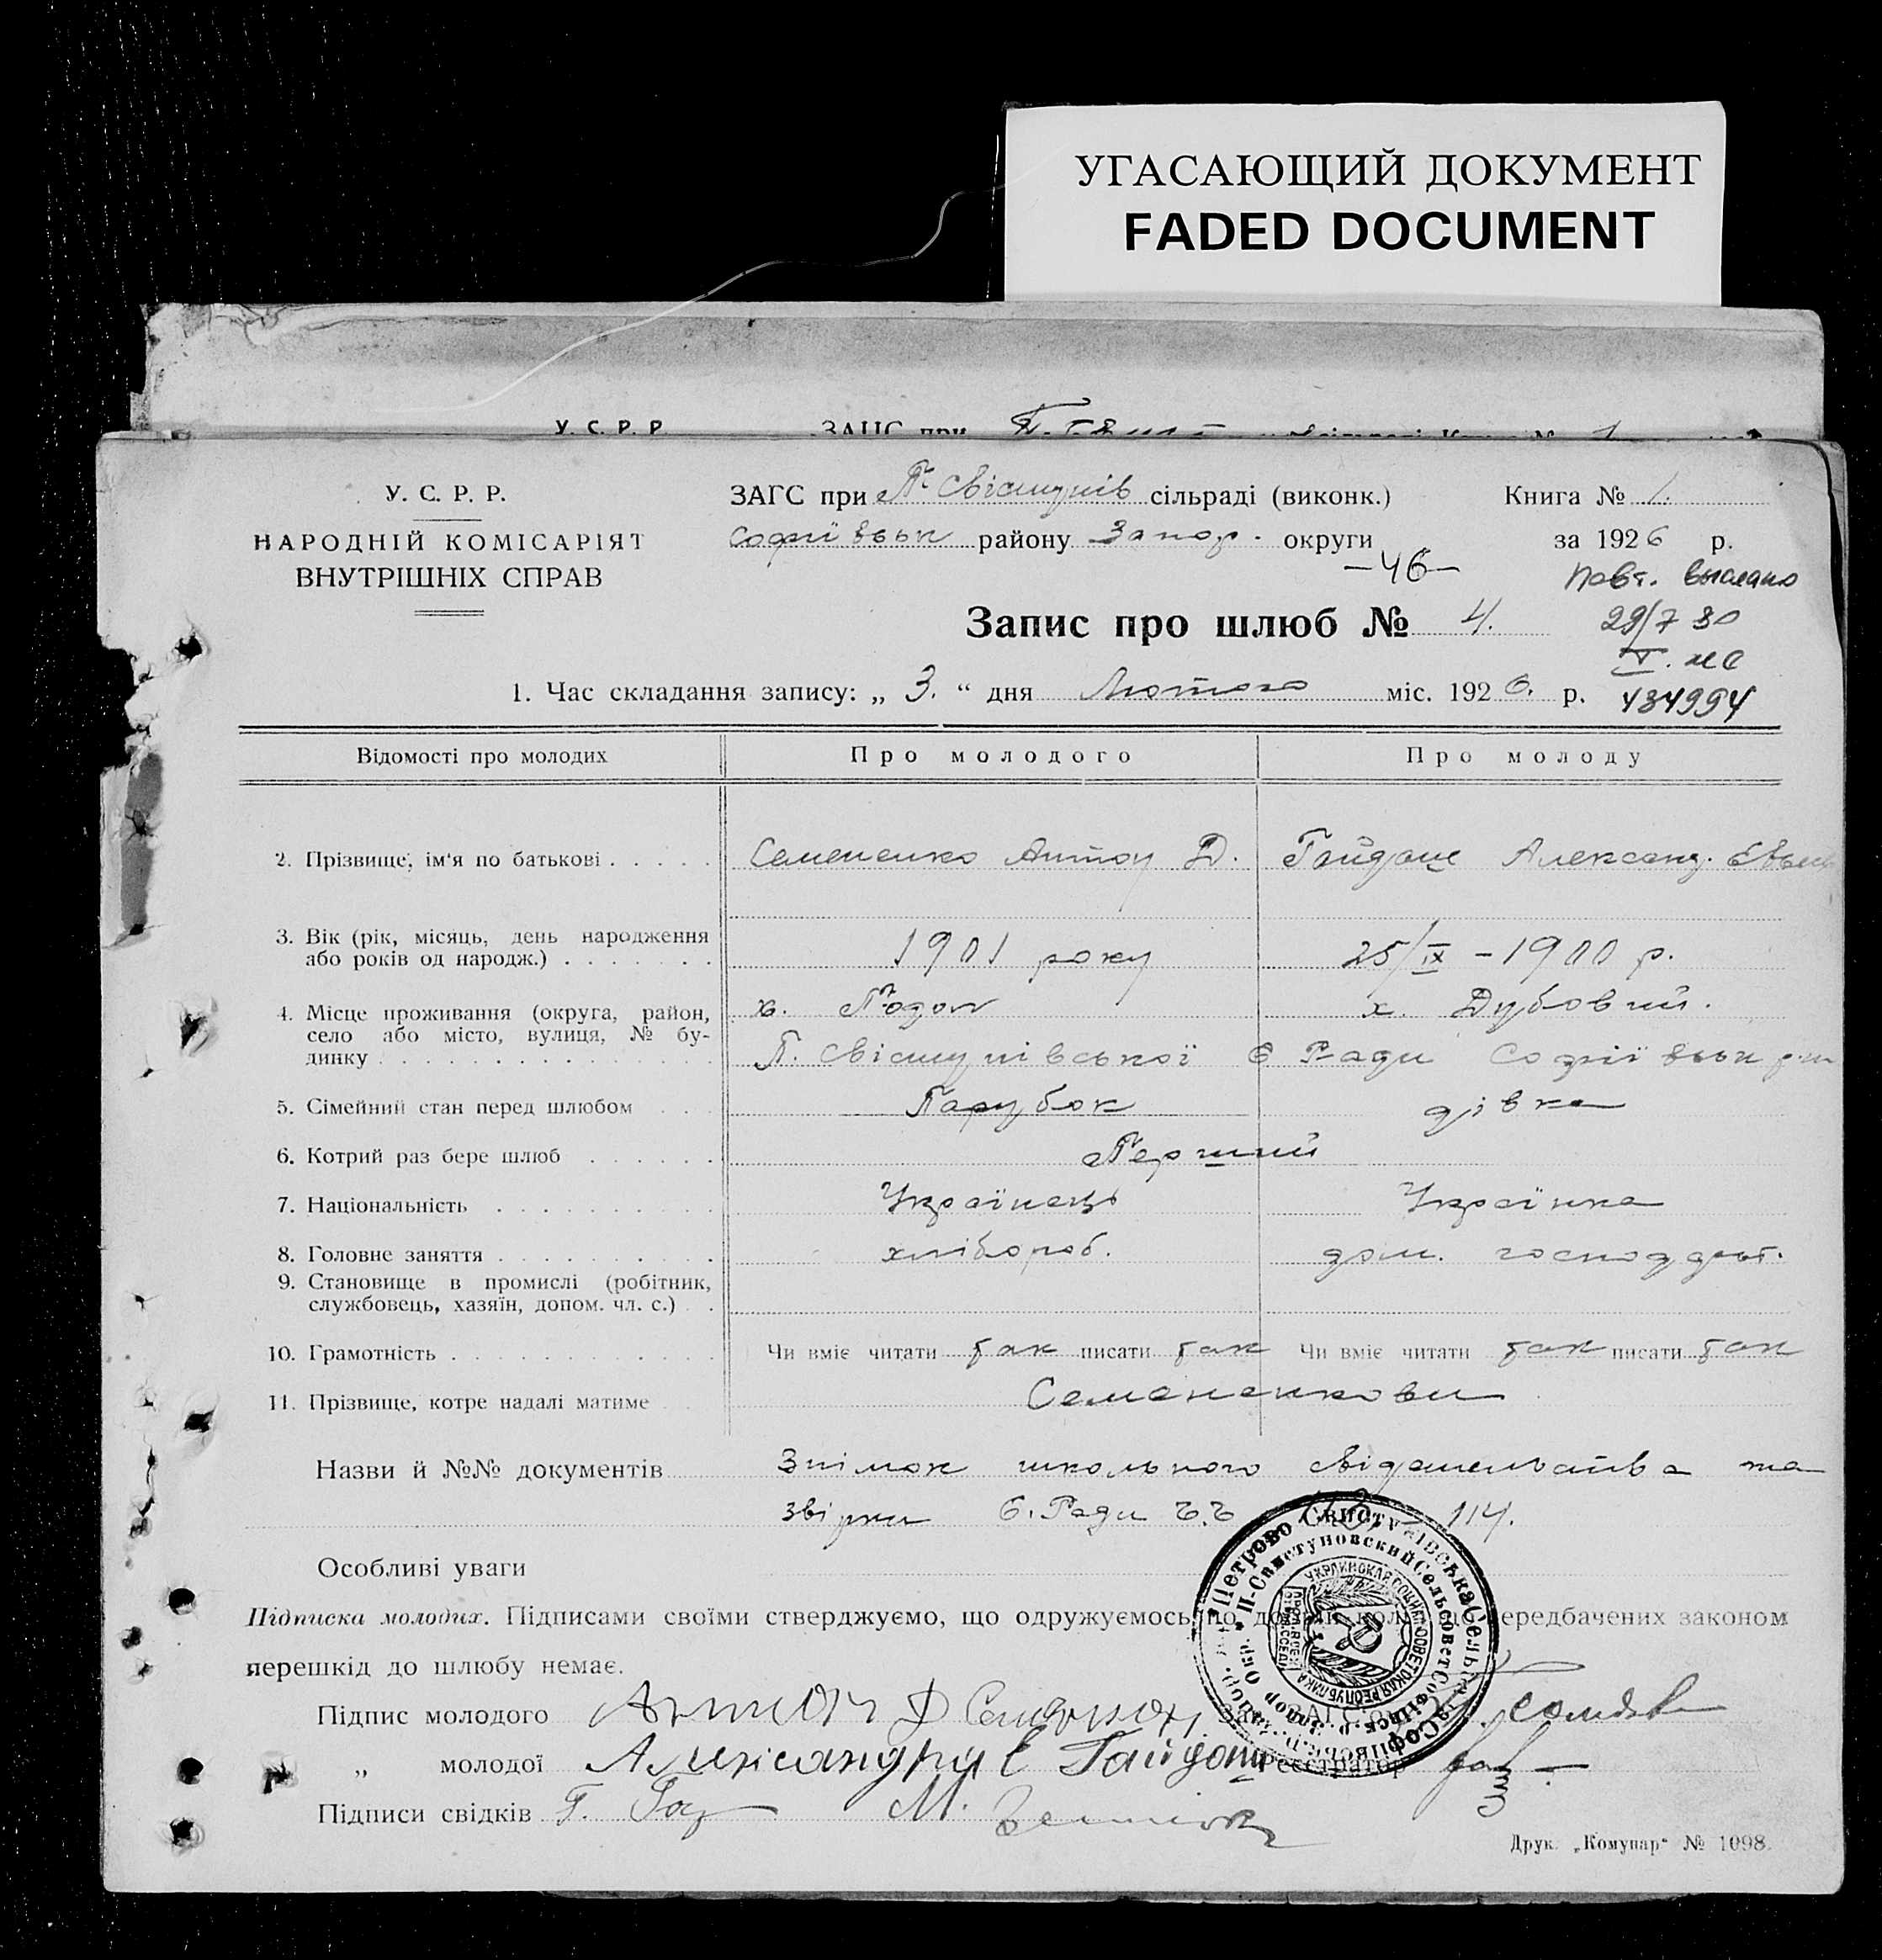 УГАСАЮЩИЙ ДОКУМЕНТ
FADED DOCUMENT
У. С. Р. Р. ЗАГС при
У. С. Р. Р.
НАРОДНІЙ КОМІСАРІЯТ
ВНУТРІШНІХ СПРАВ
ЗАГС при П. Свістунів сільраді (виконк.) Книга № 1.
Софіївськ району Запор. округи за 1926 р.
—46—
Повт. выслано
29/7 80
434994
Запис про шлюб № 4.
1. Час складання запису: „ 3. “ дня Лютого міс. 1926. р.
Відомості про молодих Про молодого Про молоду
2. Прізвище, ім'я по батькові Семененко Антон Д. Гайдаш Александ.
3. Вік (рік, місяць, день народження або років од народж.) 1901 року 25/IX - 1900 р.
4. Місце проживання (округа, район, х. х. Дубовий.
село або місто, вулиця, № бу-
динку П. Свістунівської С Ради Софіївськ р-н
5. Сімейний стан перед шлюбом Парубок дівка
6. Котрий раз бере шлюб Перший
7. Національність Українець Українка
8. Головне заняття хлібороб. дом. господарст.
9. Становище в промислі (робітник,
службовець, хазяїн, допом. чл. с.)
10. Грамотність Чи вміє читати так писати так Чи вміє читати так писати так
11. Прізвище, котре надалі матиме Семененкови
Назви й №№ документів Знімок школьного свідательства та
звірки С. Ради 114.
Особливі уваги
Підписка молодих. Підписами своїми стверджуємо, що одружуємось по добрій волі, що передбачених законом
перешкід до шлюбу немає.
Підпис молодого Антон Д Семененко Зав. ЗАГС'ом
„ молодої Александра Е Гайдаш Реєстратор
Підписи свідків Г. М.
Петрово Свистунівська Сельрада Софіївськ.
П-Свистуновский Сельсовет Софиевск. р. Запор Окр.
УКРАИНСКАЯ СОЦИАЛ. СОВЕТСКАЯ РЕСПУБЛИКА
Друк. „Комунар“ № 1098.